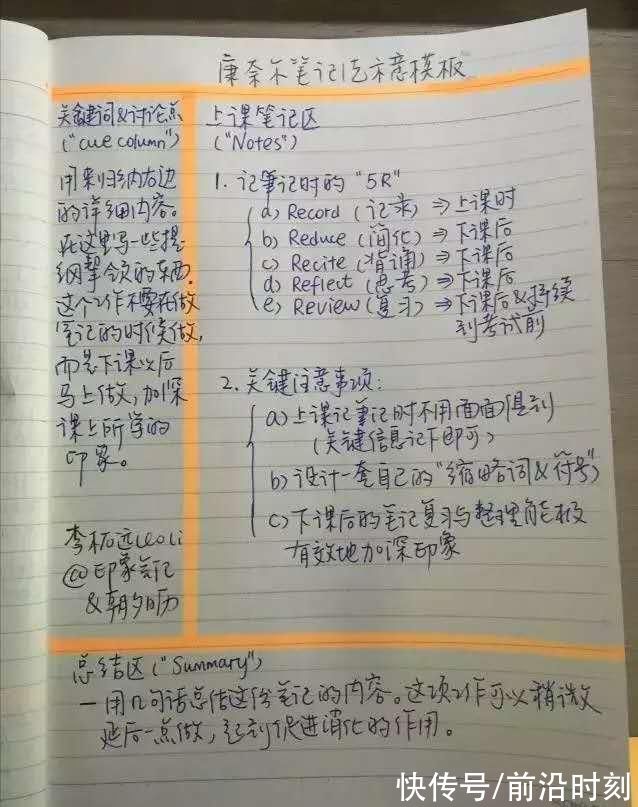 康奈尔笔记法示意模板
关键词&讨论点
("cue column")
用来归纳右边
的详细内容。
在这里写一些提
纲挈领的东西.
这个工作不要在做
笔记的时候做,
而是下课以后
马上做,加深
课上所学的
印象。
李柘远Leo Li
@印象笔记
&朝夕日历
上课笔记区
("Notes")
1. 记筆记时的 "5R"
a) Record (记录) ⇒ 上课时
b) Reduce (简化) ⇒ 下课后
c) Recite (背诵) ⇒ 下课后
d) Reflect (思考) ⇒ 下课后
e) Review (复习) ⇒ 下课后&持续
到考试前
2. 关键注意事项:
a) 上课记筆记时不用面面俱到
(关键信息记下即可)
b) 设计一套自己的"缩略词&符号"
c) 下课后的笔记复习与整理能极
有效地加深印象
总结区 ("Summary")
— 用几句话总结这份笔记的内容。这项工作可以稍微
延后一点做, 起到促进消化的作用。
快传号/前沿时刻